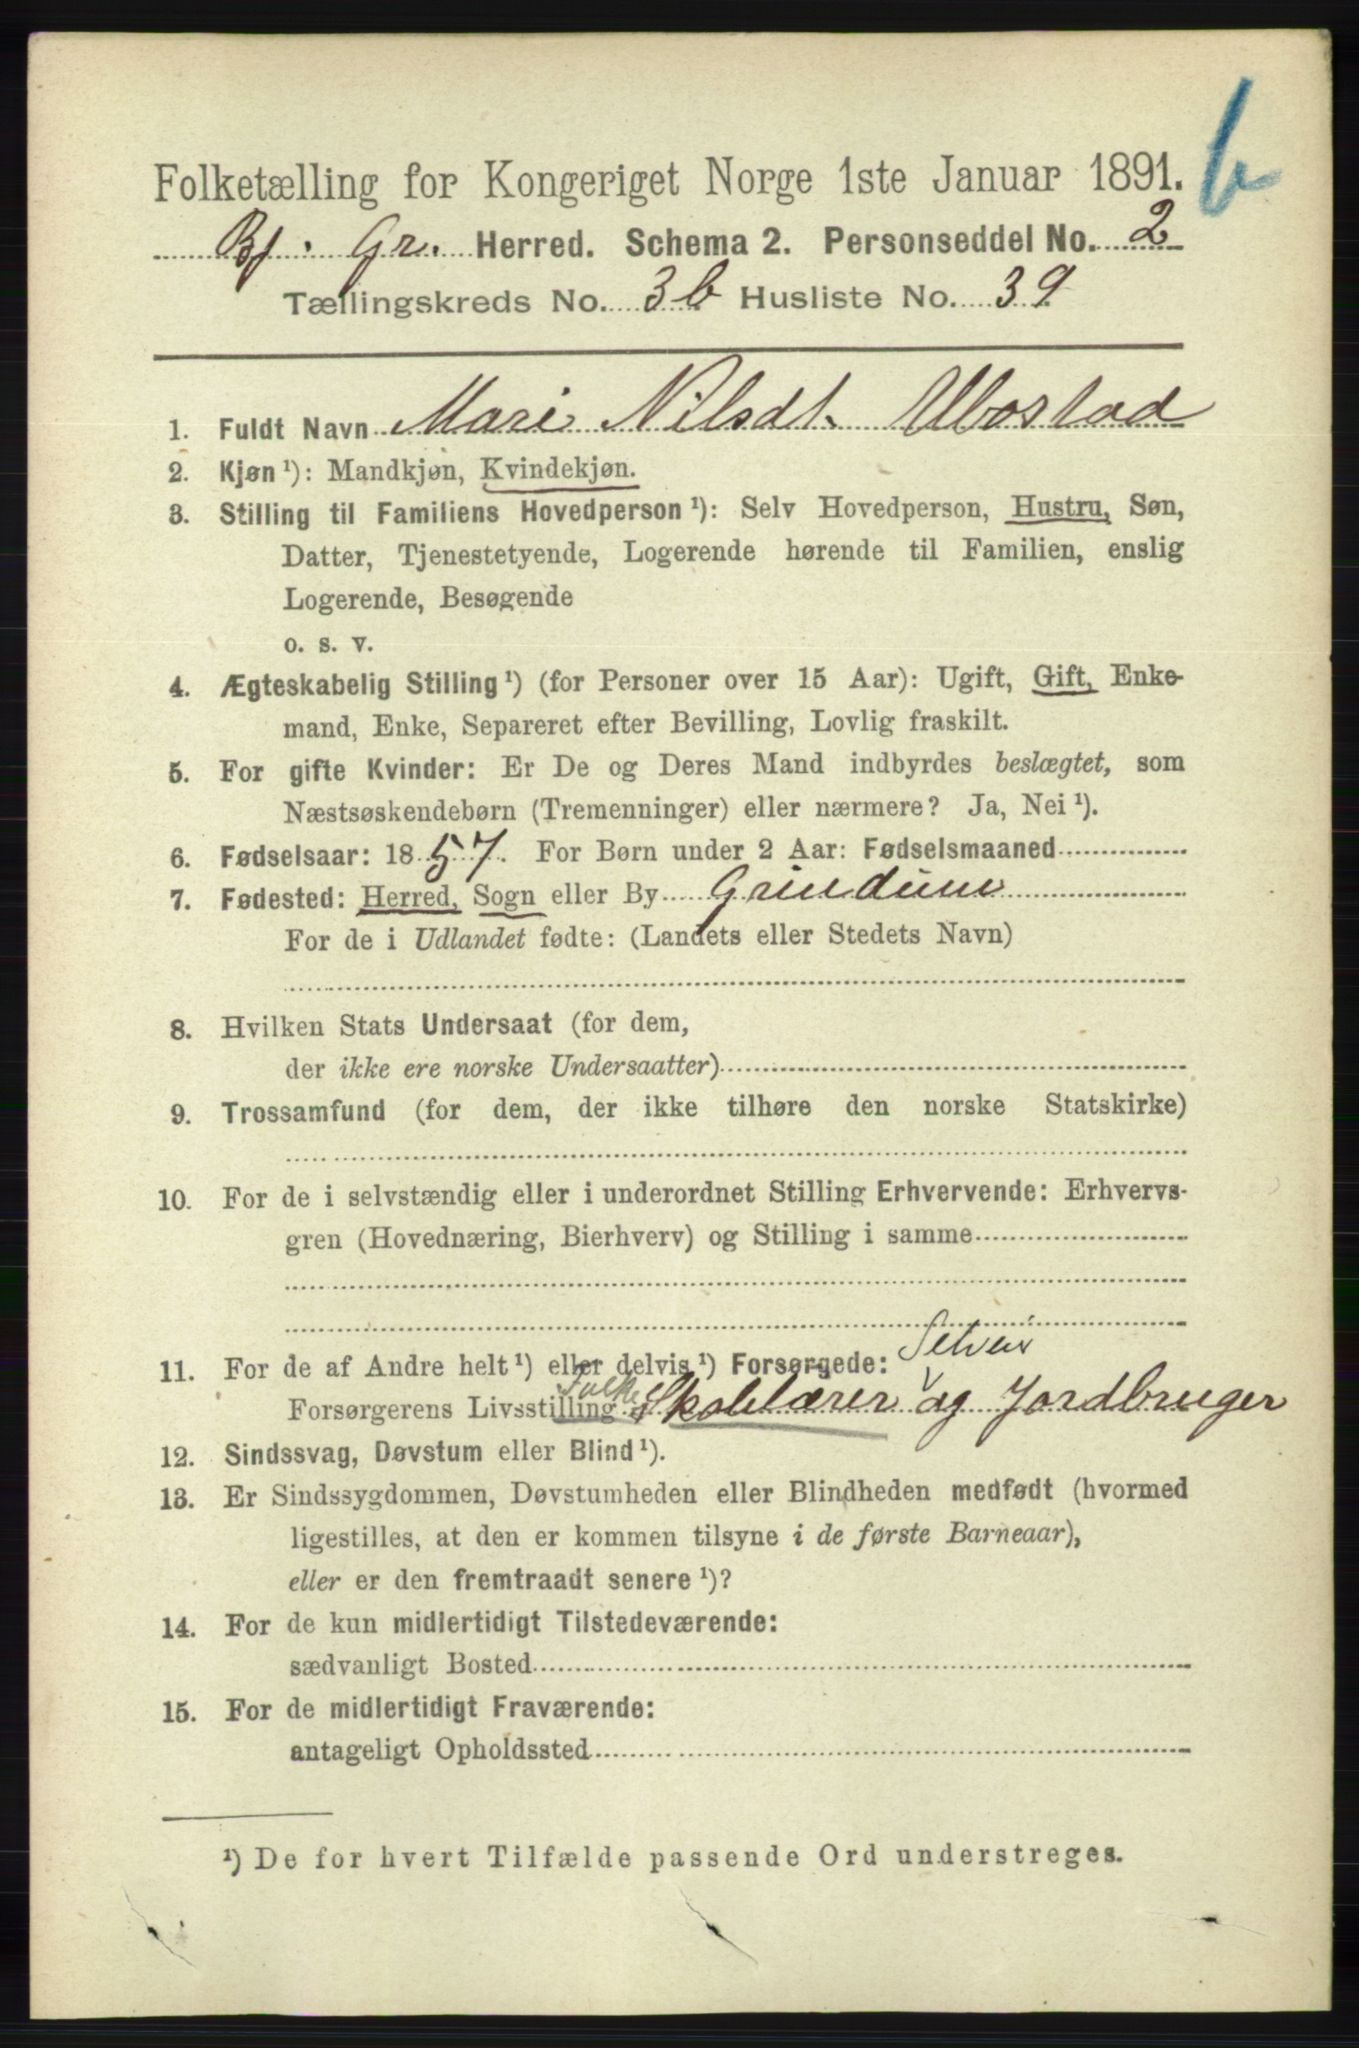 b
Folketælling for Kongeriget Norge 1ste Januar 1891.
Bj. Gr. Herred. Schema 2. Personseddel No. 2
Tællingskreds No. 3b Husliste No. 39
1. Fuldt Navn Mari Nilsdt. Ubostad
2. Kjøn¹): Mandkjøn, Kvindekjøn.
3. Stilling til Familiens Hovedperson¹): Selv Hovedperson, Hustru, Søn,
Datter, Tjenestetyende, Logerende hørende til Familien, enslig
Logerende, Besøgende
o. s. v.
4. Ægteskabelig Stilling¹) (for Personer over 15 Aar): Ugift, Gift, Enke-
mand, Enke, Separeret efter Bevilling, Lovlig fraskilt.
5. For gifte Kvinder: Er De og Deres Mand indbyrdes beslægtet, som
Næstsøskendebørn (Tremenninger) eller nærmere? Ja, Nei¹).
6. Fødselsaar: 1857. For Børn under 2 Aar: Fødselsmaaned
7. Fødested: Herred, Sogn eller By Grindum
For de i Udlandet fødte: (Landets eller Stedets Navn)
8. Hvilken Stats Undersaat (for dem,
der ikke ere norske Undersaatter)
9. Trossamfund (for dem, der ikke tilhøre den norske Statskirke)
10. For de i selvstændig eller i underordnet Stilling Erhvervende: Erhvervs-
gren (Hovednæring, Bierhverv) og Stilling i samme
Selveir
11. For de af Andre helt¹) eller delvis¹) Forsørgede:
Forsørgerens Livsstilling Folke Skolelærer og Jordbruger
12. Sindssvag, Døvstum eller Blind¹).
13. Er Sindssygdommen, Døvstumheden eller Blindheden medfødt (hvormed
ligestilles, at den er kommen tilsyne i de første Barneaar),
eller er den fremtraadt senere¹)?
14. For de kun midlertidigt Tilstedeværende:
sædvanligt Bosted
15. For de midlertidigt Fraværende:
antageligt Opholdssted
¹) De for hvert Tilfælde passende Ord understreges.